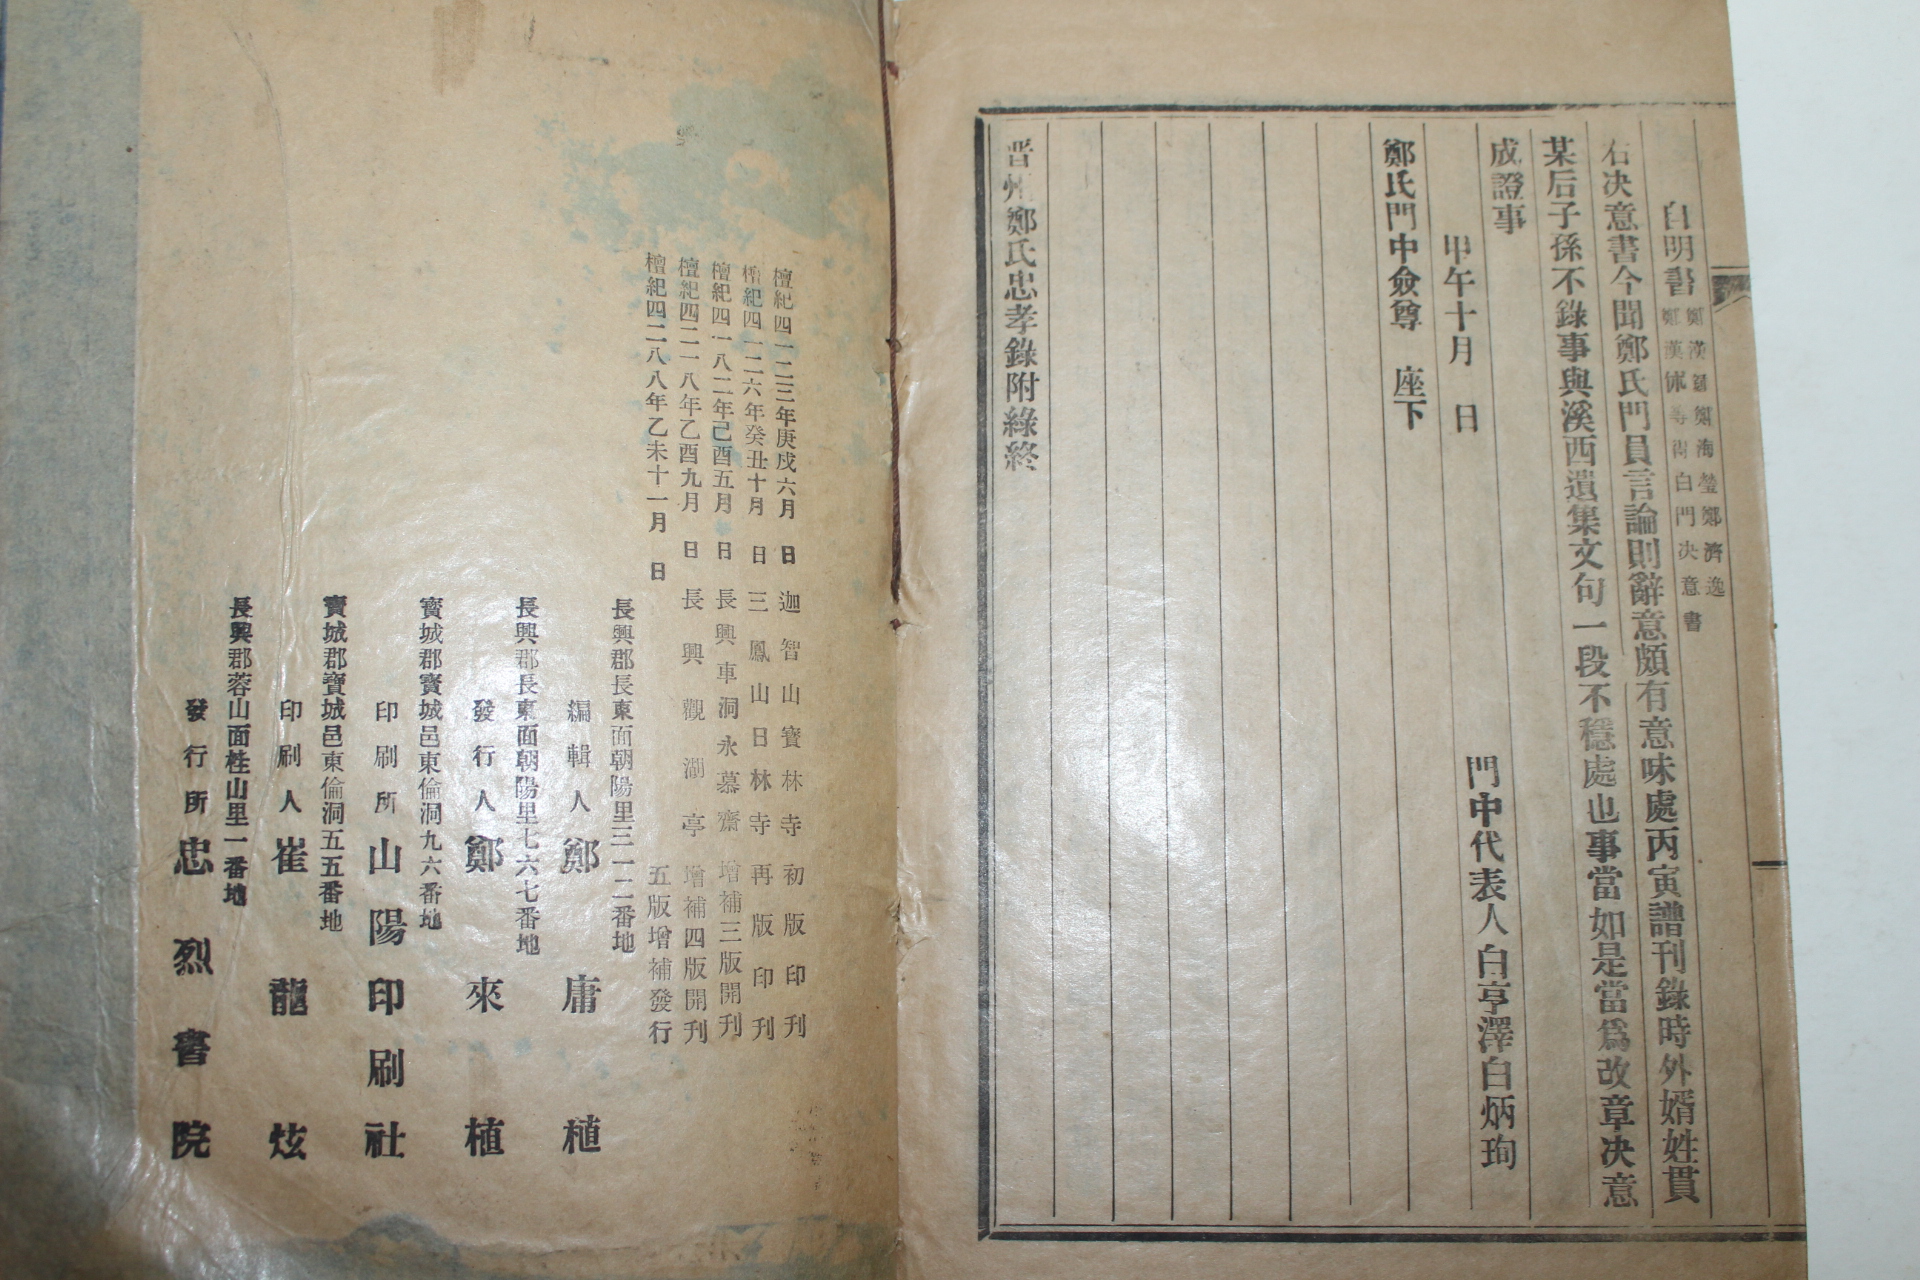 白明書
鄭漢鎔鄭海瑩鄭濟逸
鄭漢休等得白門决意書
右决意書今聞鄭氏門員言論則辭意頗有意味處丙寅譜刊錄時外婿姓貫
某后子孫不錄事與溪西遺集文句一段不穩處也事當如是當爲改章决意
成證事
甲午十月 日
門中代表人白亨澤白炳珣
鄭氏門中僉尊 座下
晋州鄭氏忠孝錄附綠終
檀紀四一二三年庚戌六月 日 迦智山寶林寺初版印刋
檀紀四一二六年癸丑十月 日 三鳳山日林寺再版印刋
檀紀四一八二年己酉五月 日 長興車洞永慕齋增補三版開刋
檀紀四二一八年乙酉九月 日 長興觀湖亭增補四版開刋
檀紀四二八八年乙未十一月 日 五版增補發行
長興郡長東面朝陽里三一二番地
編輯人 鄭庸植
長興郡長東面朝陽里七六七番地
發行人 鄭來植
寶城郡寶城邑東倫洞九六番地
印刷所 山陽印刷社
寶城郡寶城邑東倫洞五五番地
印刷人 崔龍炫
長興郡蓉山面桂山里一番地
發行所 忠烈書院